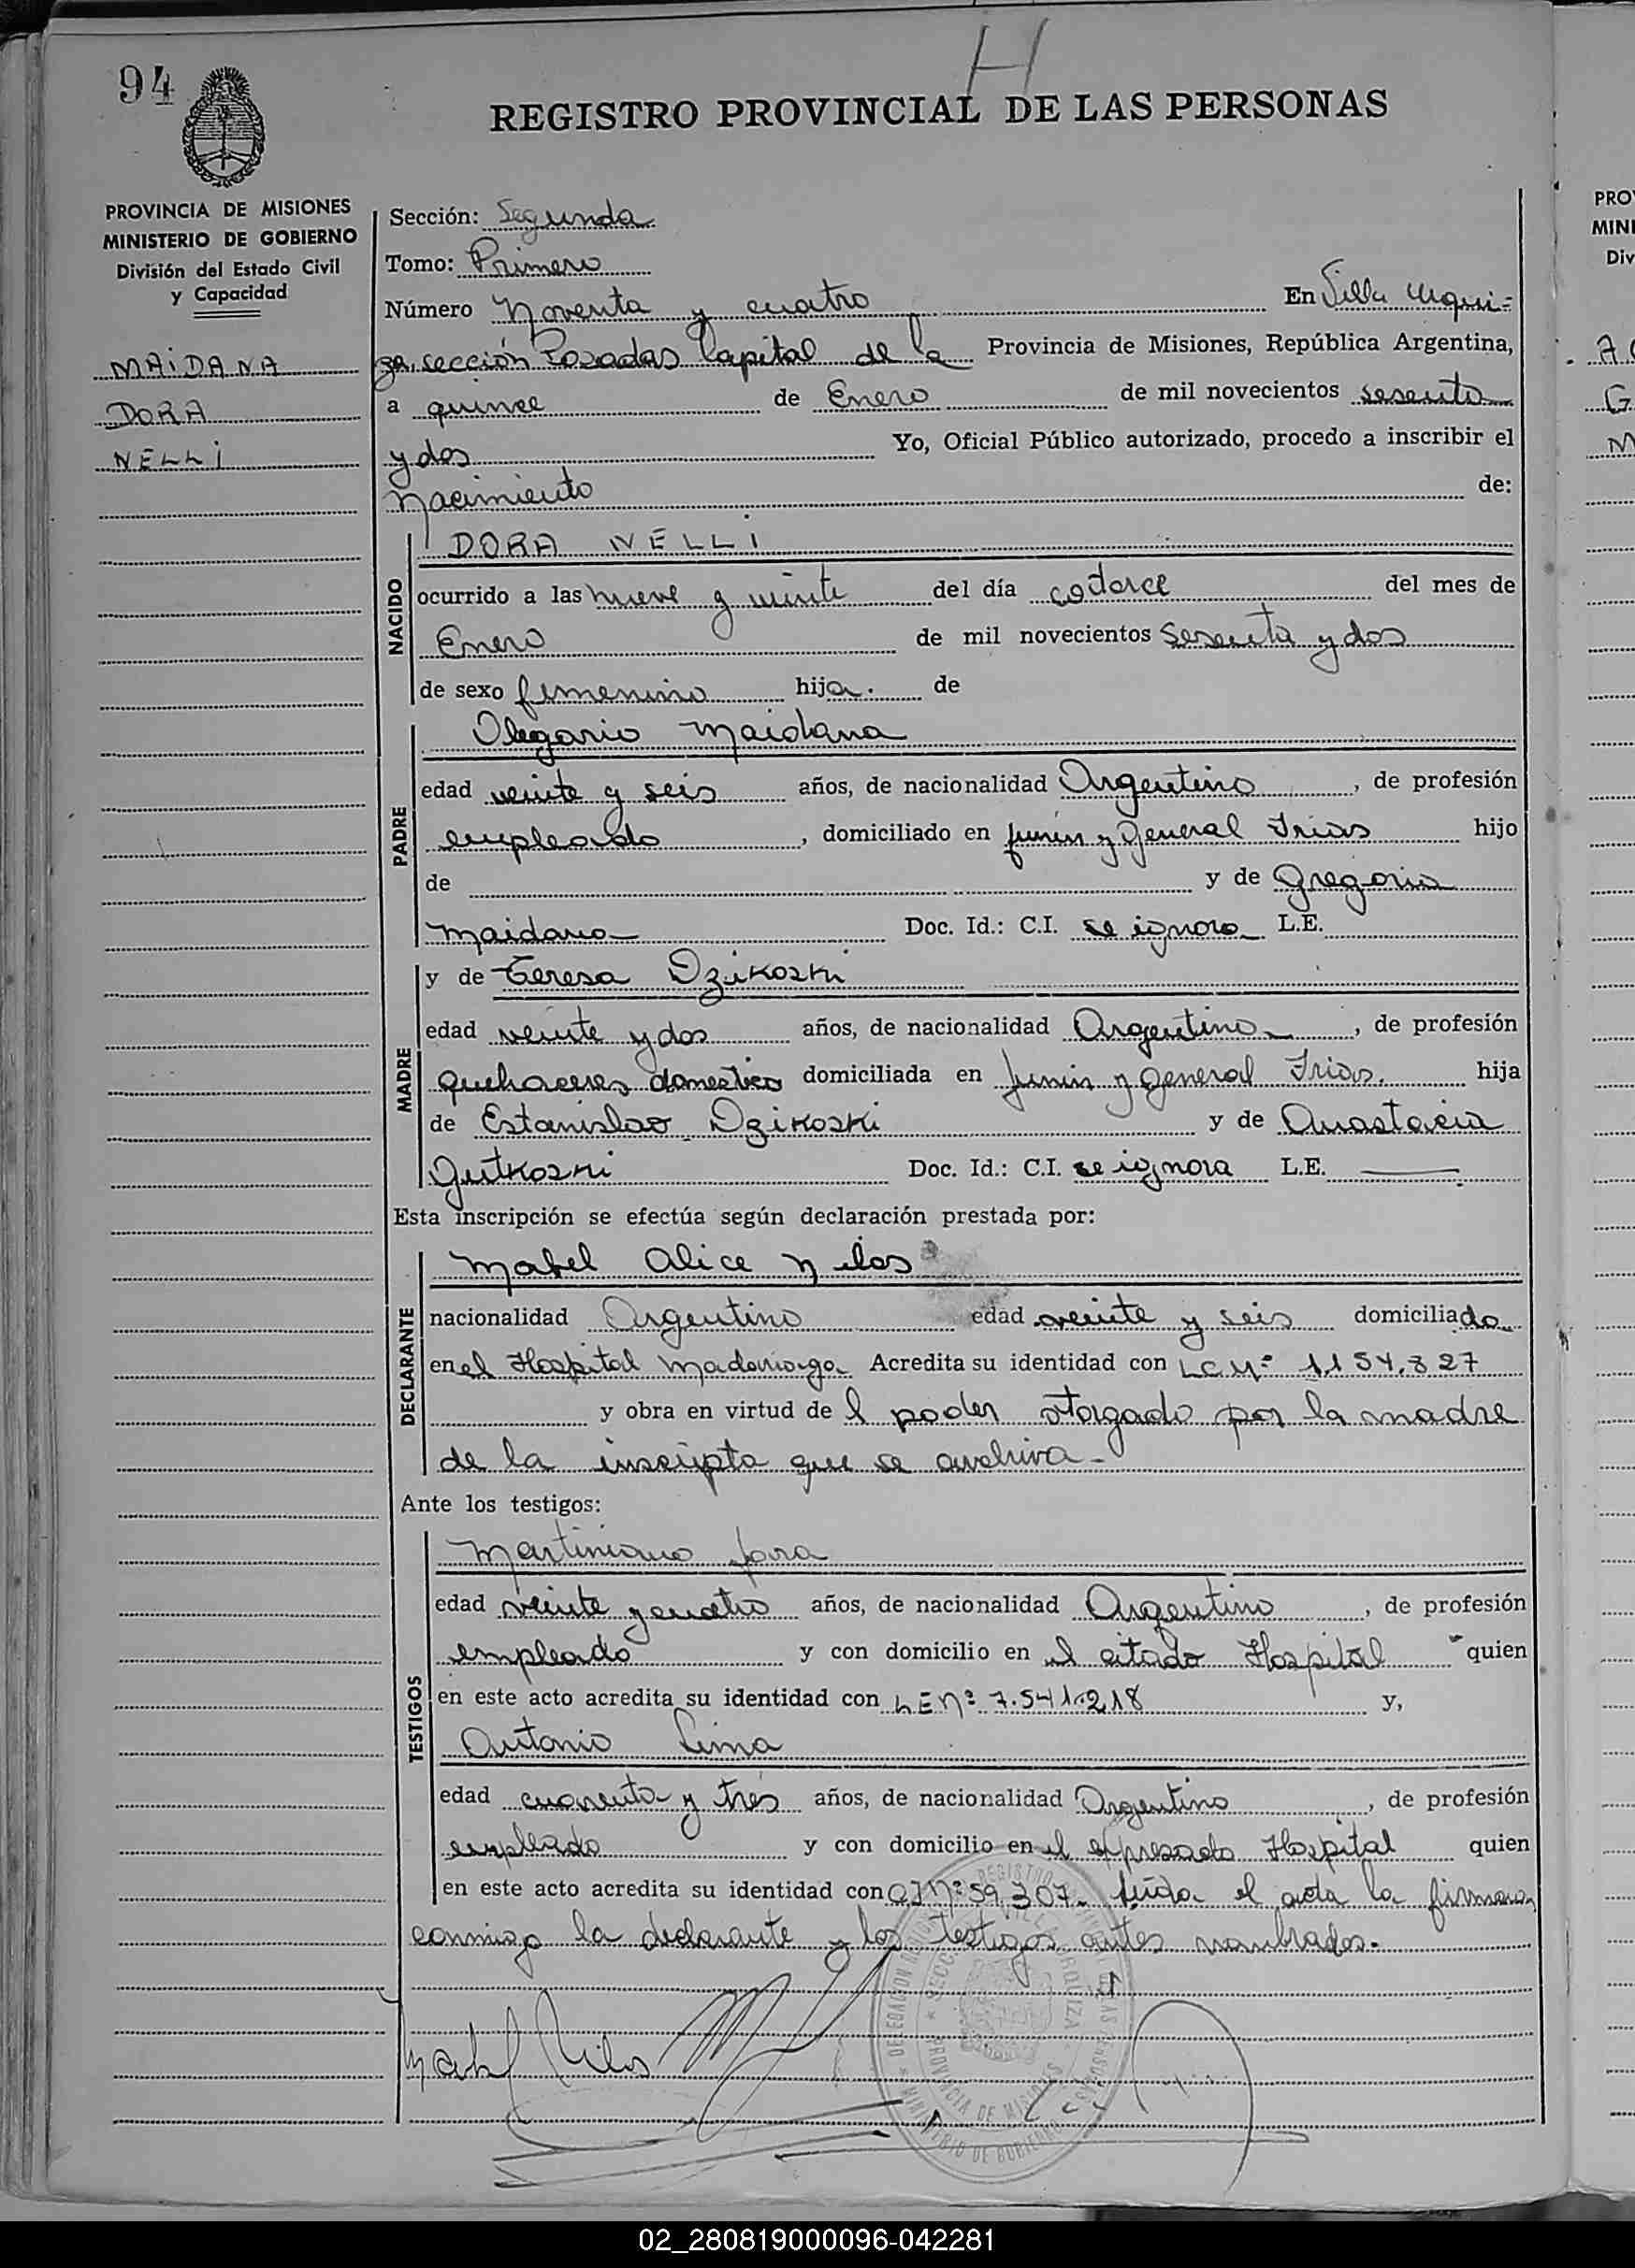 H
94
REGISTRO PROVINCIAL DE LAS PERSONAS
PROVINCIA DE MISIONES
MINISTERIO DE GOBIERNO
División del Estado Civil
y Capacidad
MAIDANA
DORA
NELLI
Sección: Segunda
Tomo: Primero
Número Noventa y cuatro En Villa Urqui=
za, sección Posadas Capital de la Provincia de Misiones, República Argentina,
a quince de Enero de mil novecientos sesenta
y dos Yo, Oficial Público autorizado, procedo a inscribir el
Nacimiento de:
NACIDO
DORA NELLI
ocurrido a las nueve y veinte del día catorce del mes de
Enero de mil novecientos sesenta y dos
de sexo femenino hija. de
PADRE
Olegario Maidana
edad veinte y seis años, de nacionalidad Argentino, de profesión
empleado, domiciliado en Junin y General Frias hijo
de y de Gregoria
Maidana Doc. Id.: C.I. se ignora L.E.
MADRE
y de Teresa Dzikoski
edad veinte y dos años, de nacionalidad Argentina, de profesión
quehaceres domestico domiciliada en Junin y General Frias. hija
de Estanislao Dzikoski y de Anastacia
Gutkoski Doc. Id.: C.I. se ignora L.E.
Esta inscripción se efectúa según declaración prestada por:
DECLARANTE
Mabel Alice
nacionalidad Argentina edad veinte y seis domiciliada
en el Hospital Madariaga Acredita su identidad con L C Nº 1.154.827
y obra en virtud de l poder otorgado por la madre
de la inscripta que se archiva-
Ante los testigos:
TESTIGOS
Martiniano Jara
edad veinte y cuatro años, de nacionalidad Argentino, de profesión
empleado y con domicilio en el citado Hospital quien
en este acto acredita su identidad con L E Nº 7.541.218 y,
Antonio Lima
edad cuarenta y tres años, de nacionalidad Argentino, de profesión
empleado y con domicilio en el expresado Hospital quien
en este acto acredita su identidad con C I Nº 59.307- Leida el acta la firman
conmigo la declarante y los testigos antes nombrados.-
PROVINCIA DE MISIONES
MINISTERIO DE GOBIERNO
PRO
MINI
Div
02_280819000096-042281